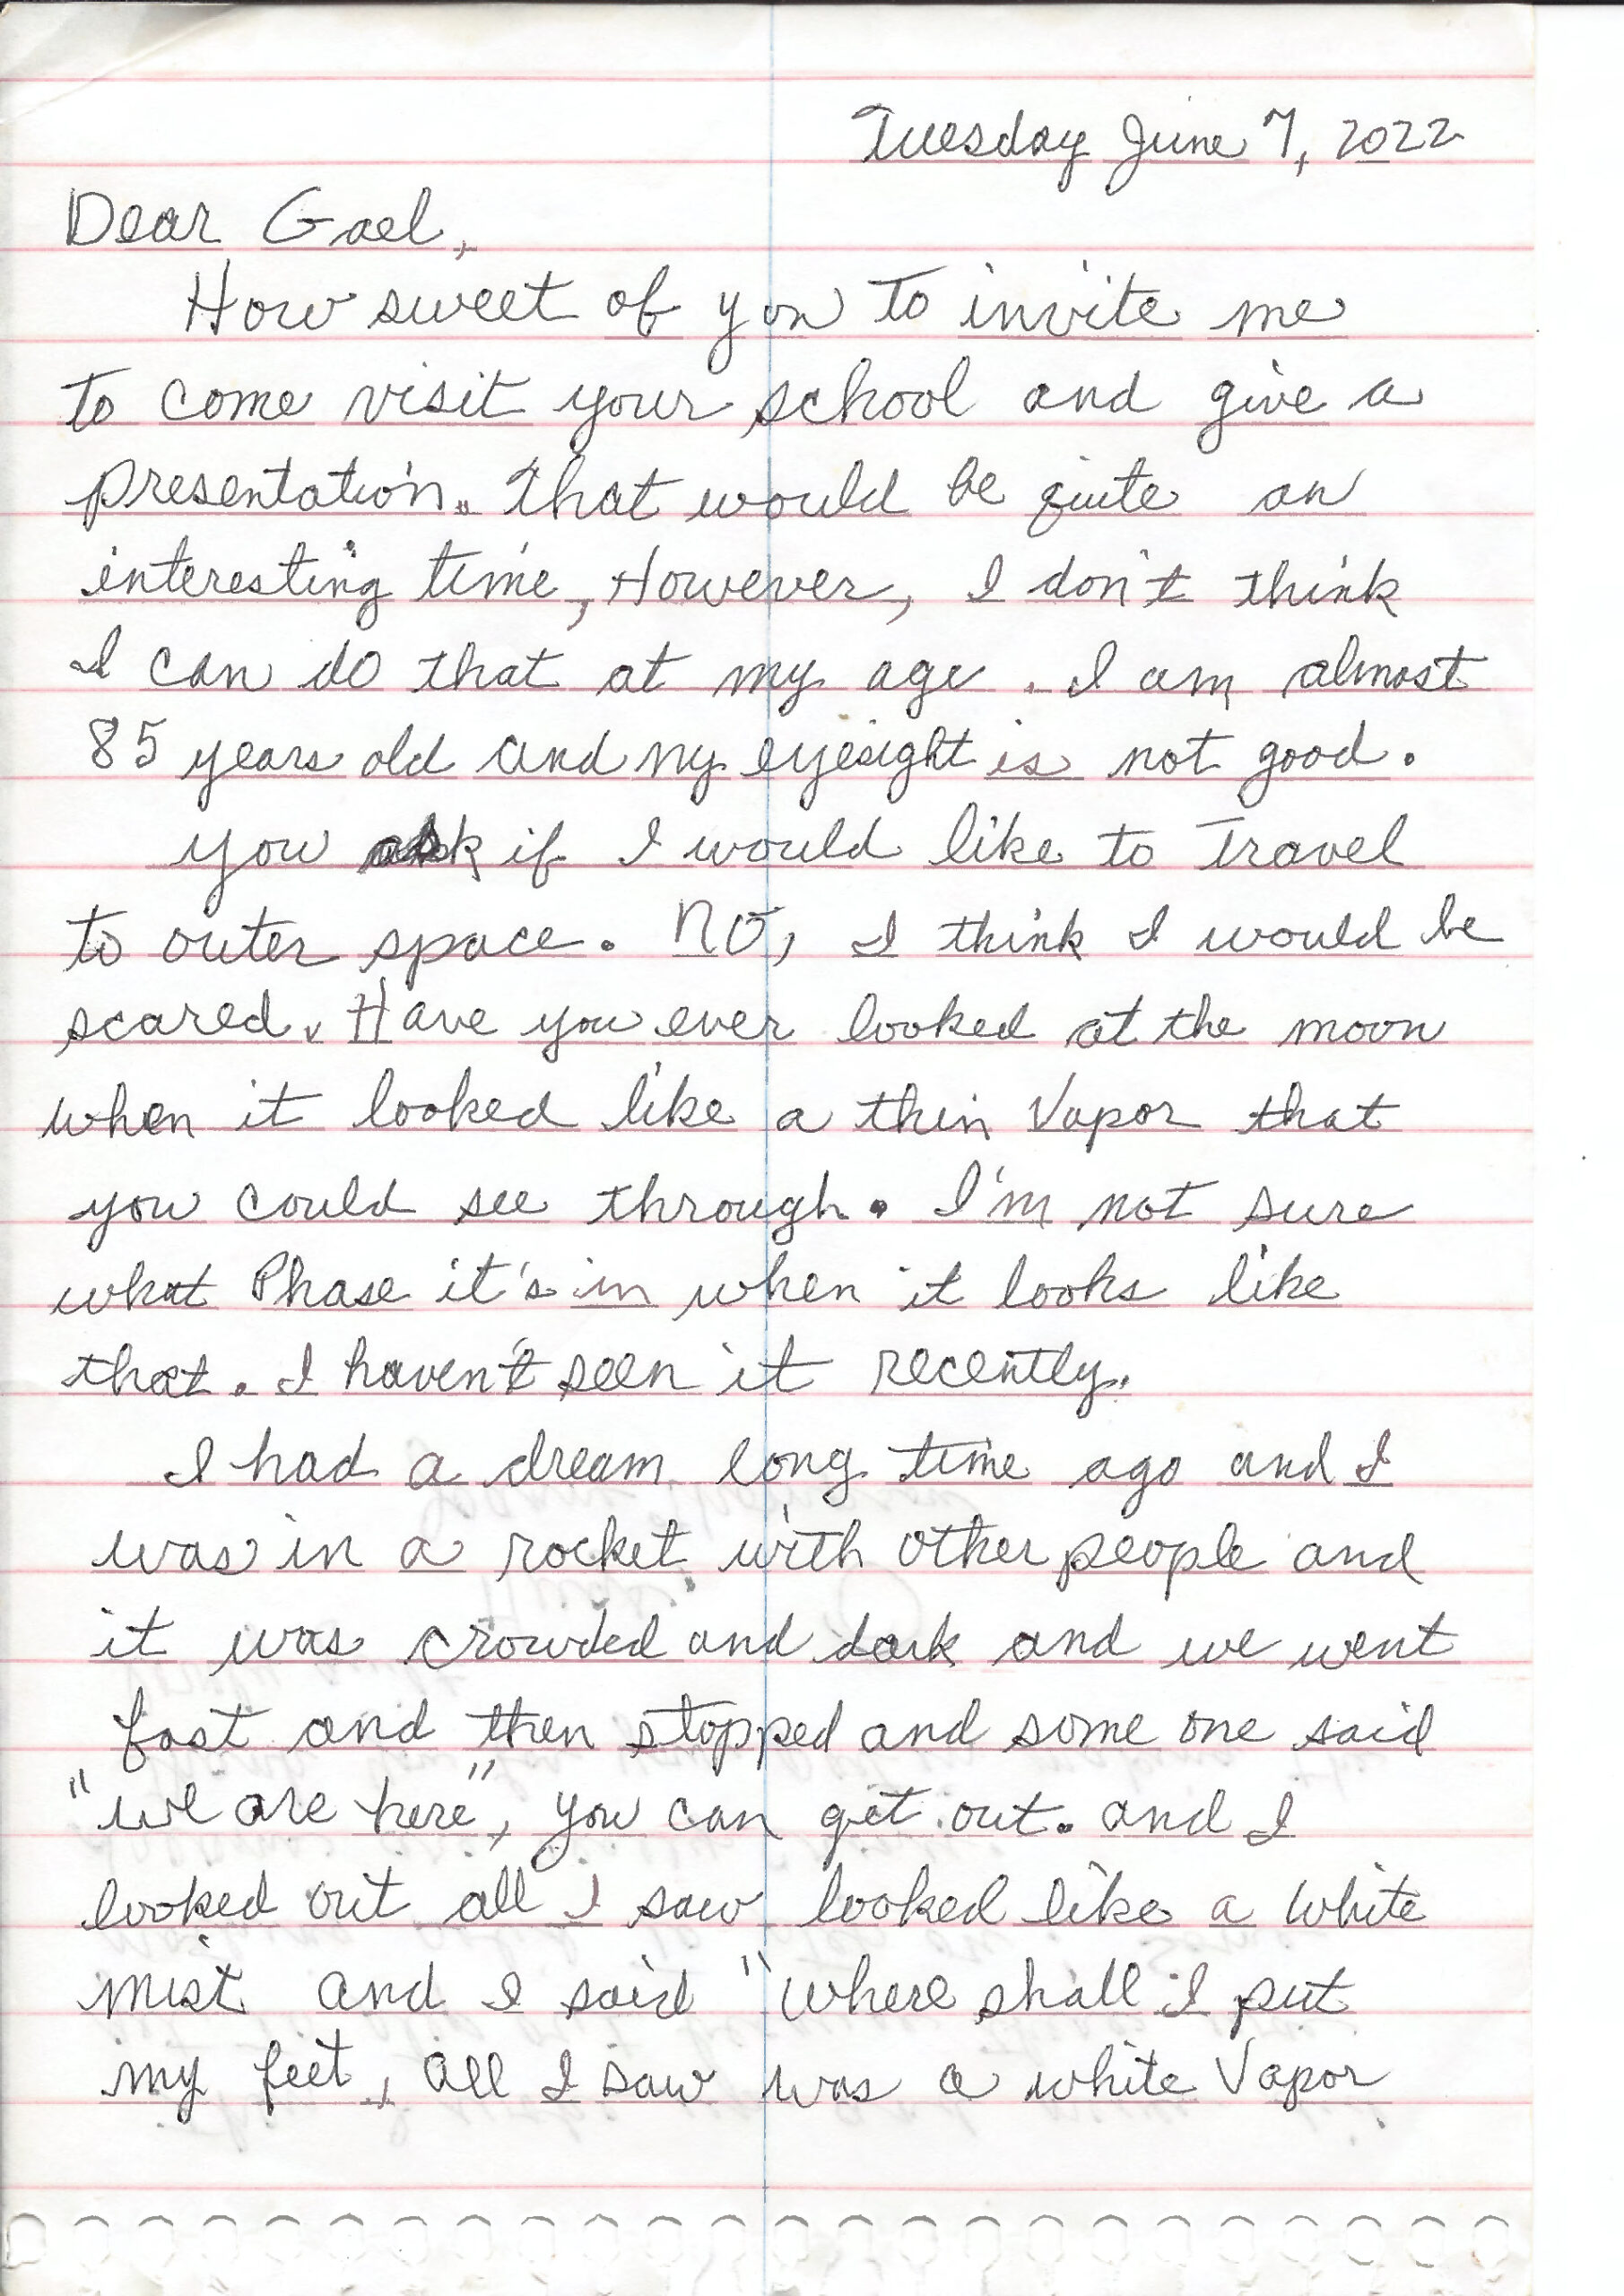 Tuesday June 7, 2022
Dear Gael,
How sweet of you to invite me
to come visit your school and give a
presentation. That would be quite an
interesting time, However, I don't think
I can do that at my age. I am almost
85 years old and my eyesight is not good.
you ask if I would like to Travel
to outer space. No, I think I would be
scared. Have you ever looked at the moon
when it looked like a thin Vapor that
you could see through. I'm not sure
what Phase it's in when it looks like
that. I haven't seen it recently.
I had a dream long time ago and I
was in a rocket with other people and
it was crowded and dark and we went
fast and then stopped and some one said
"we are here", you can get out. and I
looked out all I saw looked like a white
mist and I said "where shall I put
my feet, all I saw was a white Vapor